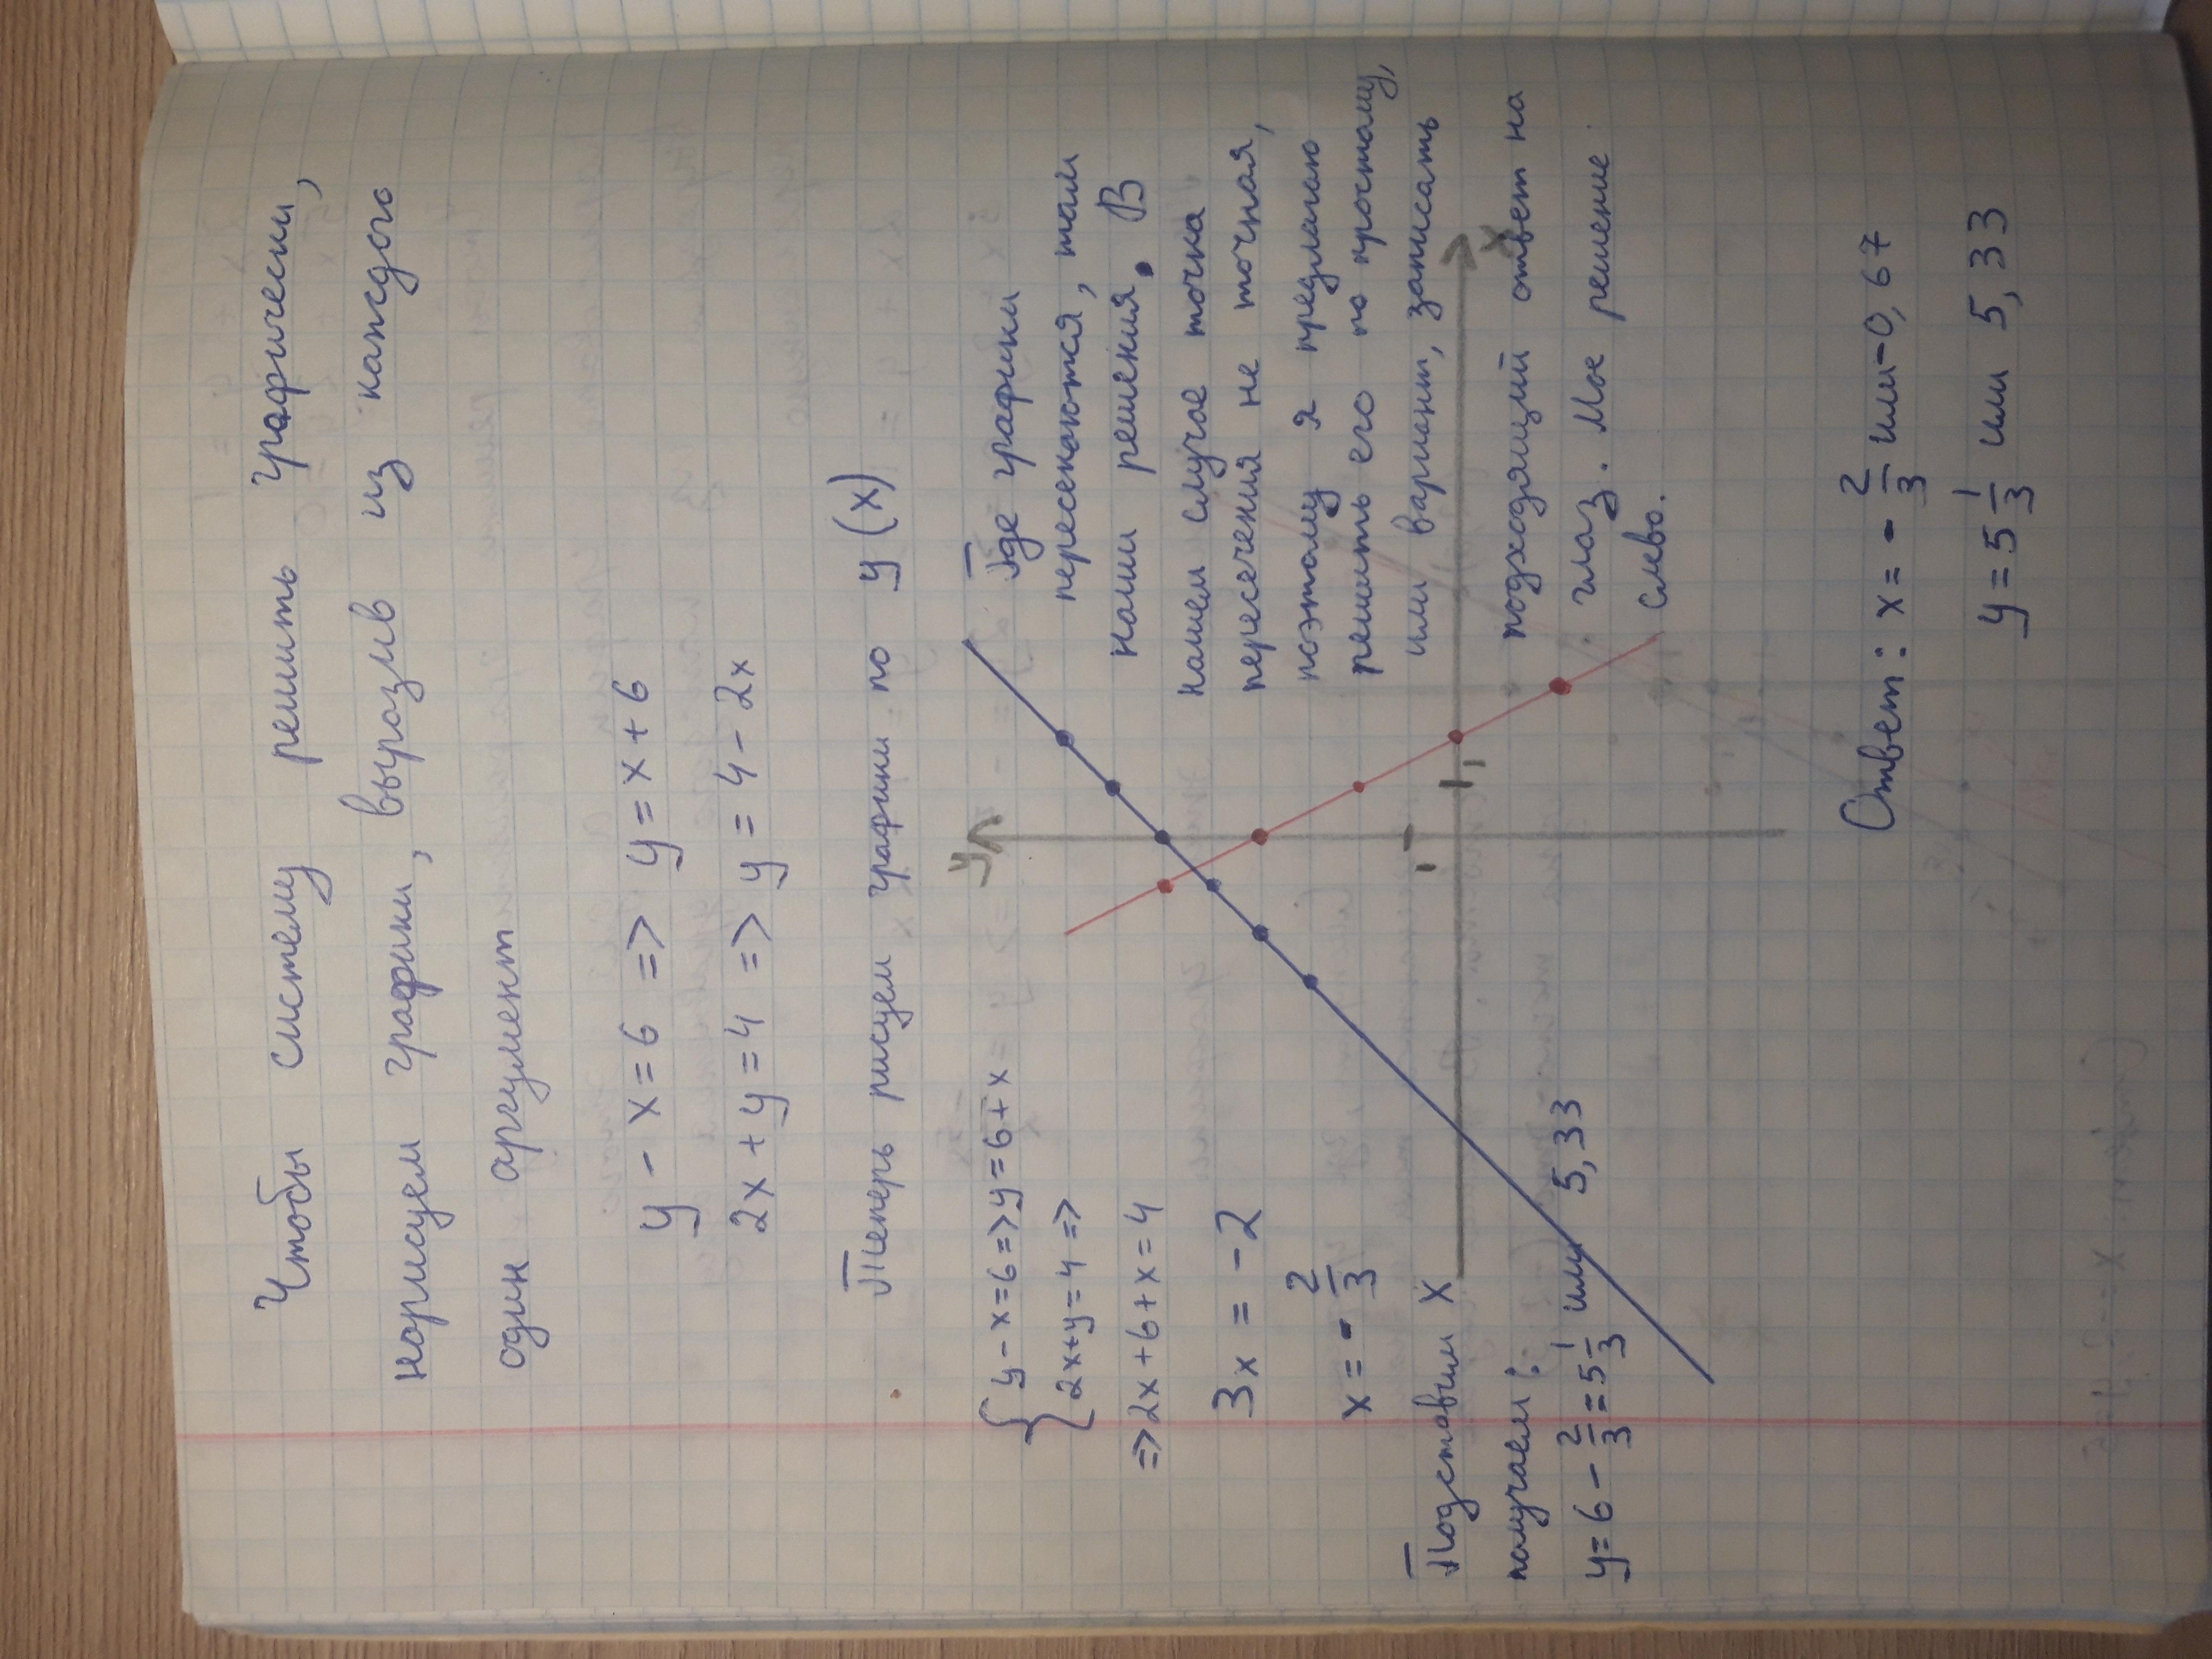 Чтобы систему решить графически,
нарисуем графики, выразив из каждого
один аргумент
y - x = 6 => y = x + 6
2x + y = 4 => y = 4 - 2x
Теперь рисуем графики по y(x)
{ y - x = 6 => y = 6 + x
2x + y = 4 =>
=> 2x + 6 + x = 4
3x = -2
x = - 2/3
Подставим x
получаем:
y = 6 - 2/3 = 5 1/3 или 5,33
y
x
1
1
Где графики
пересекаются, там
наши решения. В
нашем случае точка
пересечения не точная,
поэтому я предлагаю
решить его по простому,
или вариант, записать
подходящий ответ на
глаз. Мое решение
слево.
Ответ: x = - 2/3 или -0,67
y = 5 1/3 или 5,33